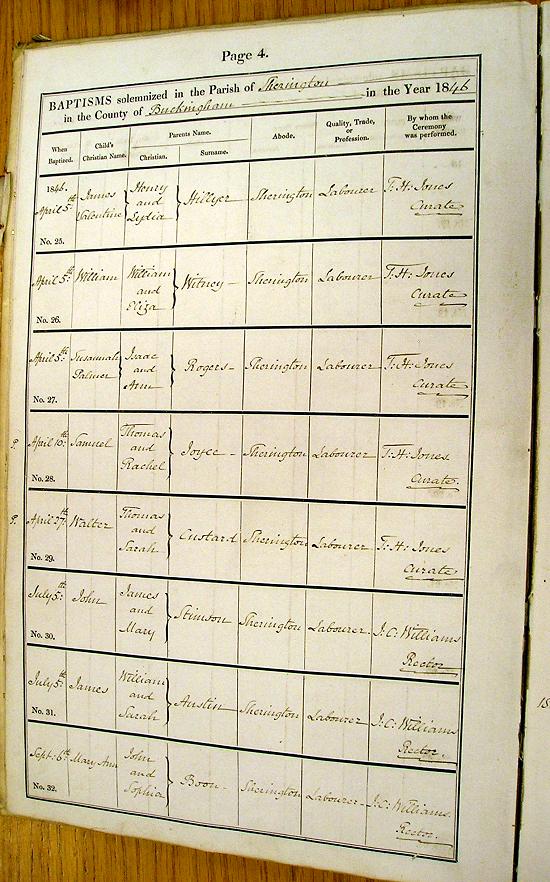 Page 4.
BAPTISMS solemnized in the Parish of Sherington
in the County of Buckingham in the Year 1846
When Baptized. Child's Christian Name. Parents Name. Abode. Quality, Trade, or Profession. By whom the Ceremony was performed.
Christian. Surname.
1846.
April 5th James Valentine Henry and Lydia Hillyer Sherington Labourer T: H: Jones Curate
No. 25.
April 5th William William and Eliza Witney Sherington Labourer T: H: Jones Curate
No. 26.
April 5th Susannah Palmer Isaac and Ann Rogers Sherington Labourer T: H: Jones Curate
No. 27.
P. April 10th Samuel Thomas and Rachel Joyce Sherington Labourer T: H: Jones Curate.
No. 28.
P. April 27th Walter Thomas and Sarah Custard Sherington Labourer T: H: Jones Curate
No. 29.
July 5th John James and Mary Stimson Sherington Labourer J: C: Williams Rector
No. 30.
July 5th James William and Sarah Austin Sherington Labourer J: C: Williams Rector.
No. 31.
Sept: 6th Mary Ann John and Sophia Boon Sherington Labourer J: C: Williams. Rector.
No. 32.